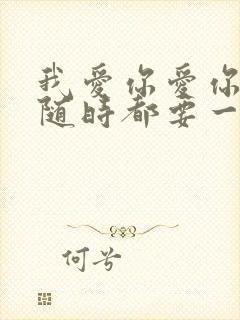 我爱你爱你
随时都要一
何兮